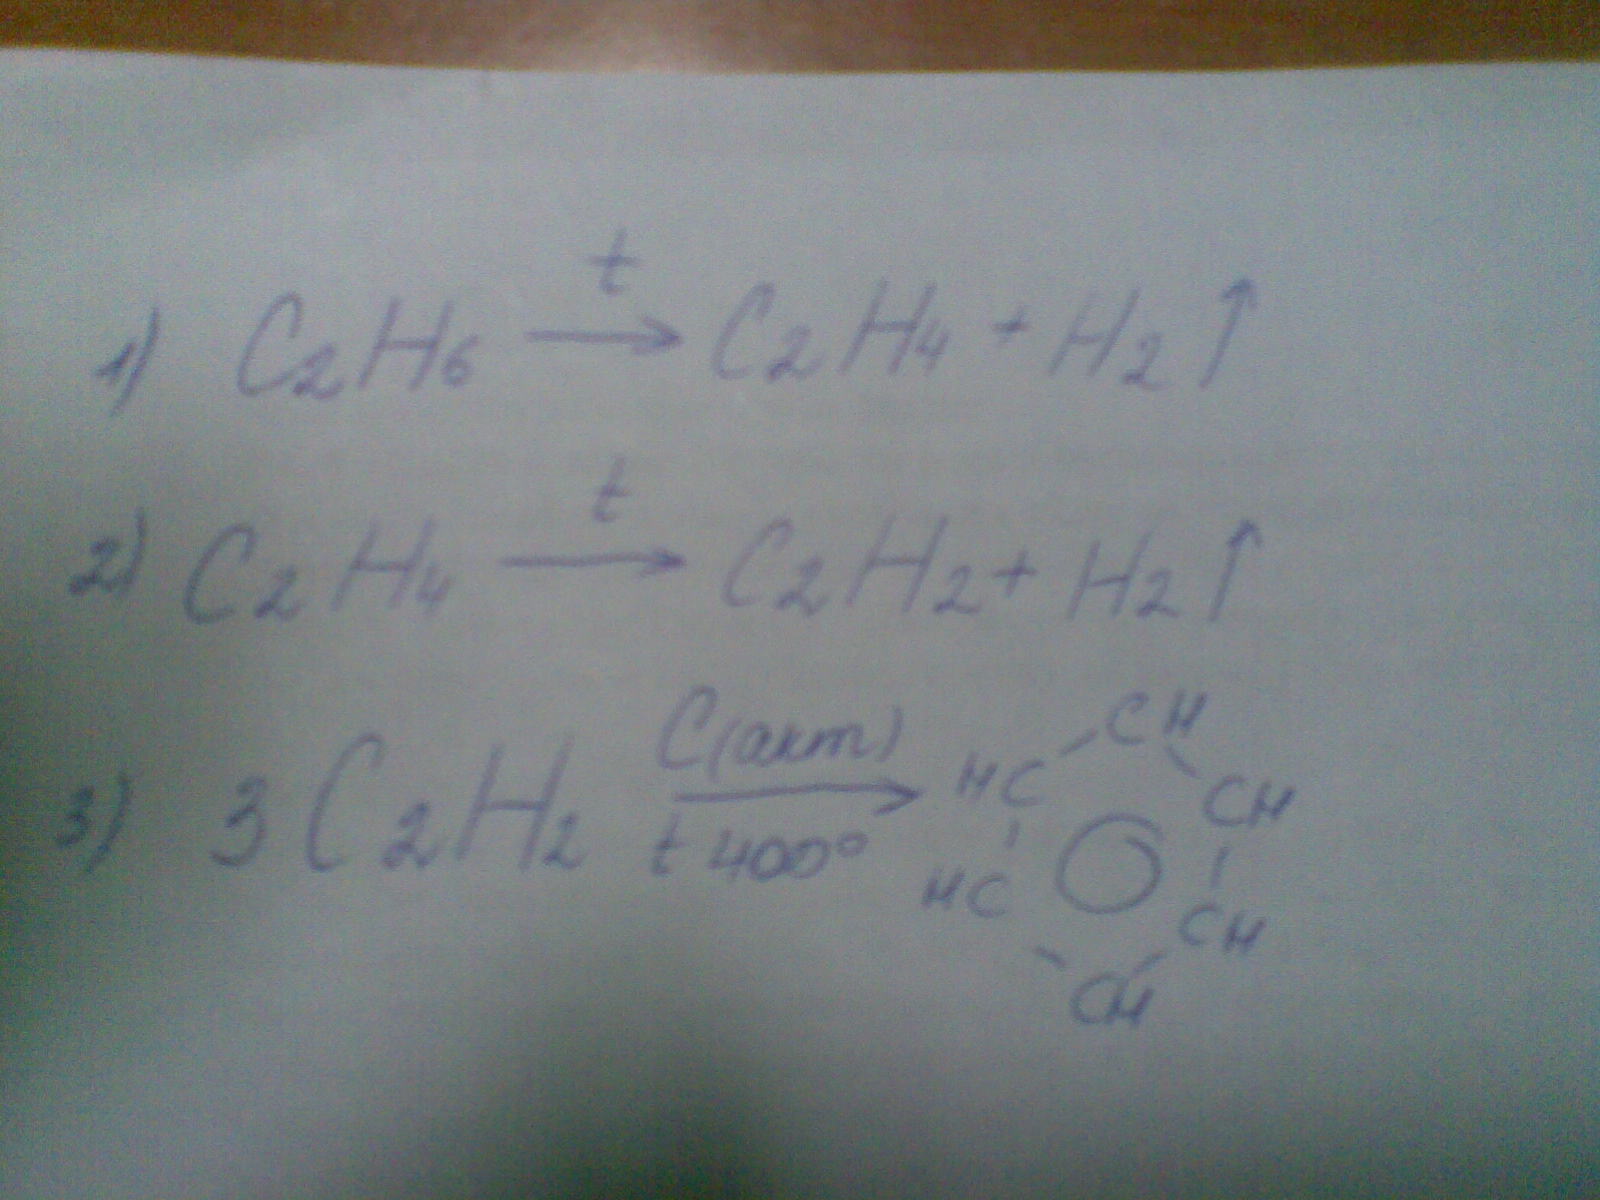 1) C₂H₆ —t→ C₂H₄ + H₂↑
2) C₂H₄ —t→ C₂H₂ + H₂↑
3) 3C₂H₂ —C(акт) t 400°→
CH
HC CH
HC CH
CH